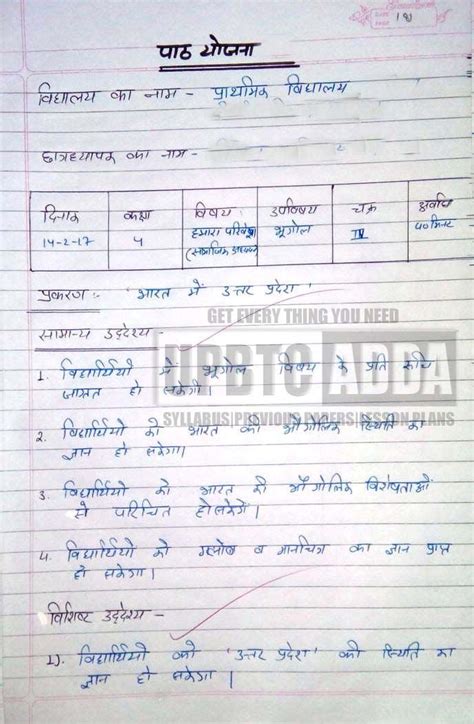 19
पाठ योजना
विद्यालय का नाम - प्राथमिक विद्यालय
छात्राध्यापक का नाम -
दिनांक कक्षा विषय उपविषय चक्र अवधि
14-2-17 5 हमारा परिवेश भूगोल IV 40 मिनट
(सामाजिक अध्ययन)
प्रकरण :- "भारत में उत्तर प्रदेश"
GET EVERY THING YOU NEED
सामान्य उद्देश्य -
UPBTC ADDA
1. विद्यार्थियो में भूगोल विषय के प्रति रुचि
जाग्रत हो सकेगी।
SYLLABUS|PREVIOUS PAPERS|LESSON PLANS
2. विद्यार्थियो को भारत की भौगोलिक स्थिति का
ज्ञान हो सकेगा।
3. विद्यार्थियो को भारत की भौगोलिक विशेषताओं
से परिचित हो सकेगें।
4. विद्यार्थियो को ग्लोब व मानचित्र का ज्ञान प्राप्त
हो सकेगा।
विशिष्ट उद्देश्य -
1). विद्यार्थियो को 'उत्तर प्रदेश' की स्थिति का
ज्ञान हो सकेगा।